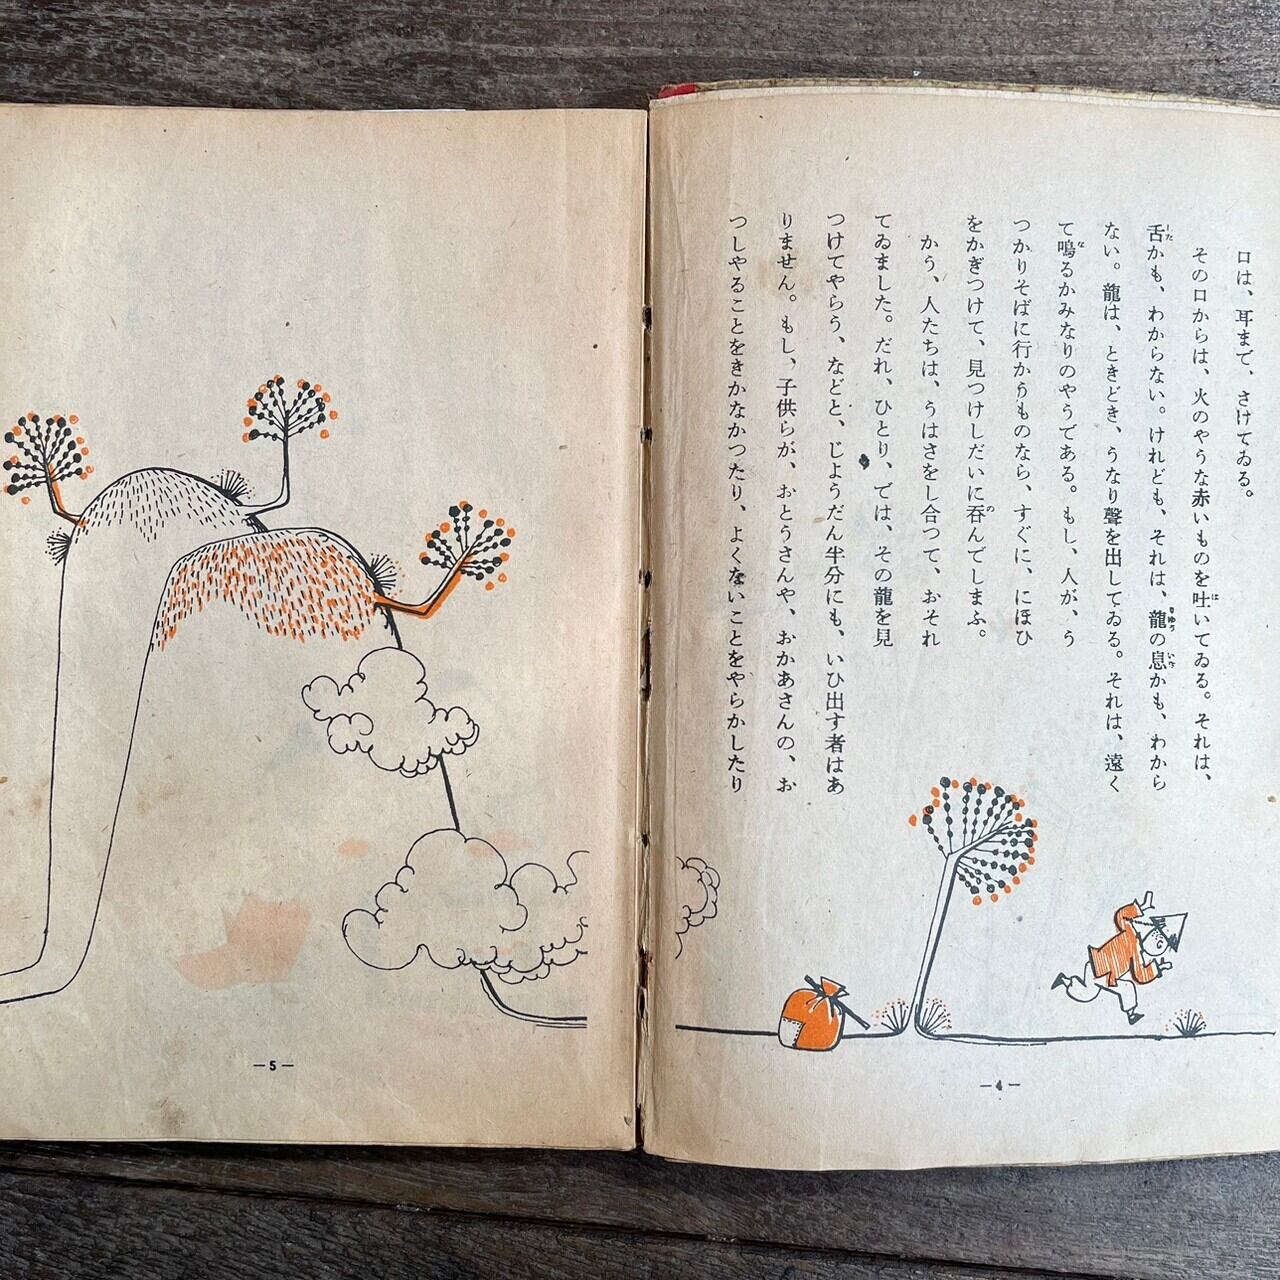 口は、耳まで、さけてゐる。
その口からは、火のやうな赤いものを吐いてゐる。それは、
舌かも、わからない。けれども、それは、龍の息かも、わから
ない。龍は、ときどき、うなり聲を出してゐる。それは、遠く
て鳴るかみなりのやうである。もし、人が、う
つかりそばに行かうものなら、すぐに、にほひ
をかぎつけて、見つけしだいに吞んでしまふ。
かう、人たちは、うはさをし合つて、おそれ
てゐました。だれ、ひとり、では、その龍を見
つけてやらう、などと、じようだん半分にも、いひ出す者はあ
りません。もし、子供らが、おとうさんや、おかあさんの、お
つしやることをきかなかつたり、よくないことをやらかしたり
—4—
—5—